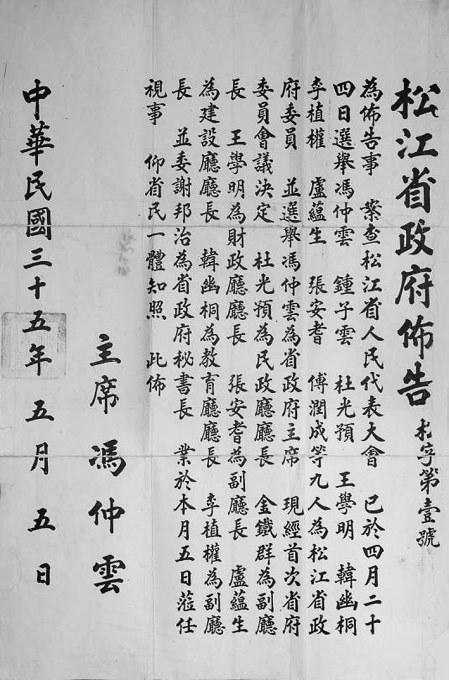 松江省政府佈告 松字第壹號
為佈告事 案查松江省人民代表大會 已於四月二十
四日選舉馮仲雲 鍾子雲 杜光預 王學明 韓幽桐
李植權 盧蘊生 張安耆 傅潤成等九人為松江省政
府委員 並選舉馮仲雲為省政府主席 現經首次省府
委員會議決定 杜光預為民政廳廳長 金鐵群為副廳
長 王學明為財政廳廳長 張安耆為副廳長 盧蘊生
為建設廳廳長 韓幽桐為教育廳廳長 李植權為副廳
長 並委謝邦治為省政府秘書長 業於本月五日蒞任
視事 仰省民一體知照 此佈
主席 馮仲雲
中華民國三十五年五月五日